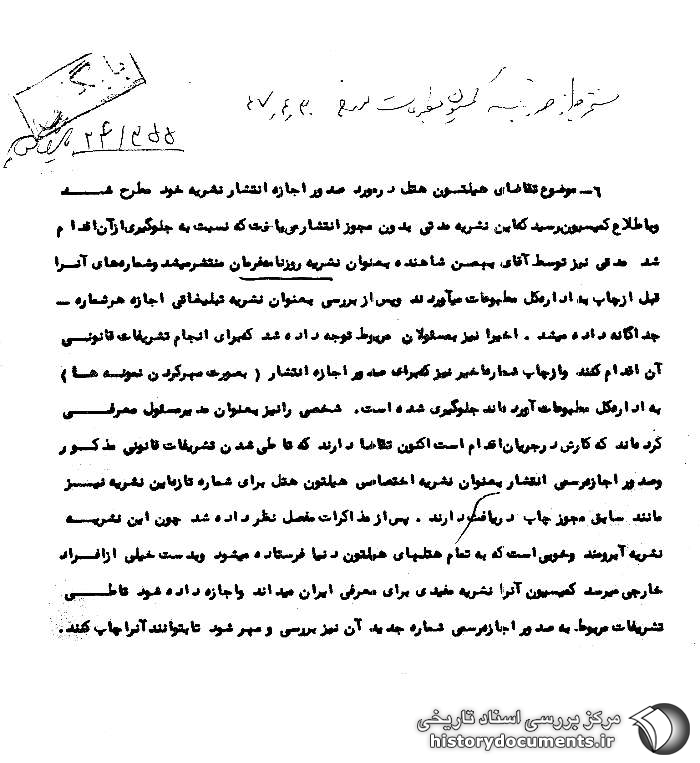 بایگانی
۲۴/۳۵۵
مستخرجه از صورتجلسه کمیسیون مطبوعات مورخ ۴۷٫۴٫۳۰
۶ــ موضوع تقاضای هیلتون هتل در مورد صدور اجازه انتشار نشریه خود مطرح شد
و باطلاع کمیسیون رسید که این نشریه مدتی بدون مجوز انتشار می یافت که نسبت به جلوگیری از آن اقدام
شد مدتی نیز توسط آقای بهمن شاهنده بعنوان نشریه روزنامه فرمان منتشر میشد و شماره های آنرا
قبل از چاپ به اداره کل مطبوعات میآوردند و پس از بررسی بعنوان نشریه تبلیغاتی اجازه هر شماره ــ
جداگانه داده میشد . اخیرا نیز بمسئولان مربوط توجه داده شد که برای انجام تشریفات قانونی
آن اقدام کنند و از چاپ شماره اخیر نیز که برای صدور اجازه انتشار ( بصورت مهر کردن نمونه ها )
به اداره کل مطبوعات آورده اند جلوگیری شده است . شخصی را نیز بعنوان مدیر مسئول معرفی
کرده اند که کارش در جریان اقدام است اکنون تقاضا دارند که تا طی شدن تشریفات قانونی مذکور
و صدور اجازه رسمی انتشار بعنوان نشریه اختصاصی هیلتون هتل برای شماره تازه این نشریه نیز
مانند سابق مجوز چاپ دریافت دارند . پس از مذاکرات مفصل نظر داده شد چون این نشریه
نشریه آبرومند و خوبی است که به تمام هتلهای هیلتون دنیا فرستاده میشود و بدست خیلی از افراد
خارجی میرسد کمیسیون آنرا نشریه مفیدی برای معرفی ایران میداند و اجازه داده شود تا طی
تشریفات مربوط به صدور اجازه رسمی شماره جدید آن نیز بررسی و مهر شود تا بتوانند آنرا چاپ کنند .
مرکز بررسی اسناد تاریخی
historydocuments.ir